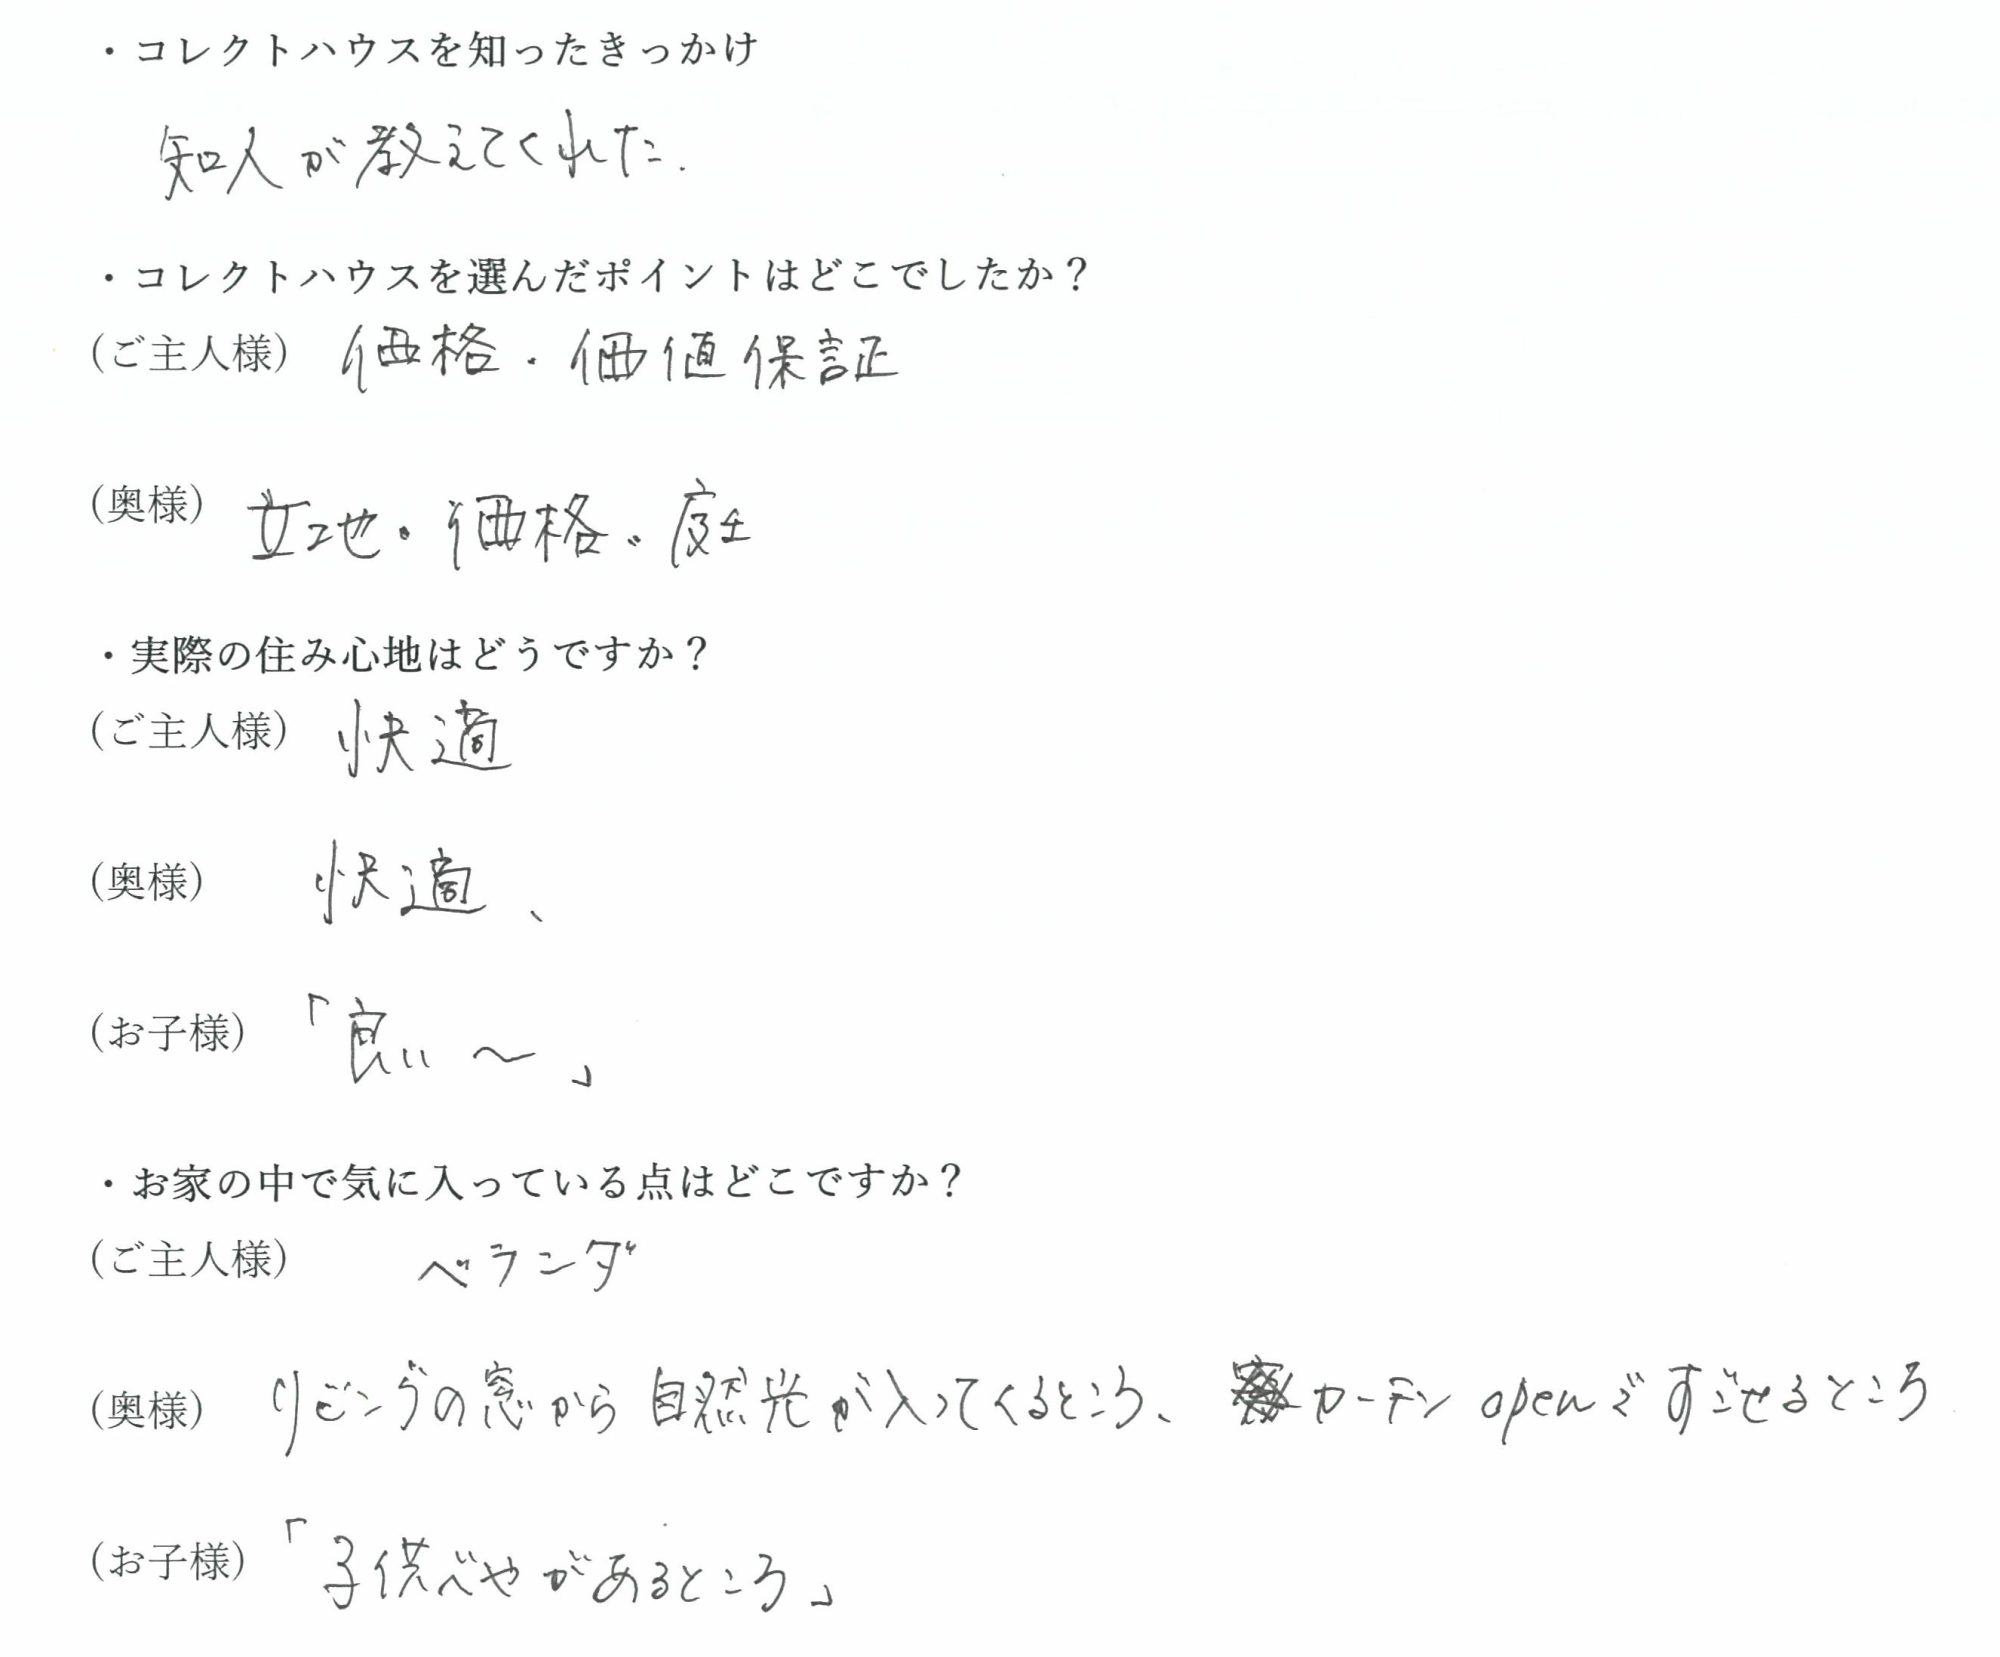 ・コレクトハウスを知ったきっかけ
知人が教えてくれた.
・コレクトハウスを選んだポイントはどこでしたか？
（ご主人様） 価格・価値保証
（奥様） 立地・価格・庭
・実際の住み心地はどうですか？
（ご主人様） 快適
（奥様） 快適、
（お子様） 「良い〜」
・お家の中で気に入っている点はどこですか？
（ご主人様） ベランダ
（奥様） リビングの窓から自然光が入ってくるところ、カーテンopenですごせるところ
（お子様） 「子供べやがあるところ」